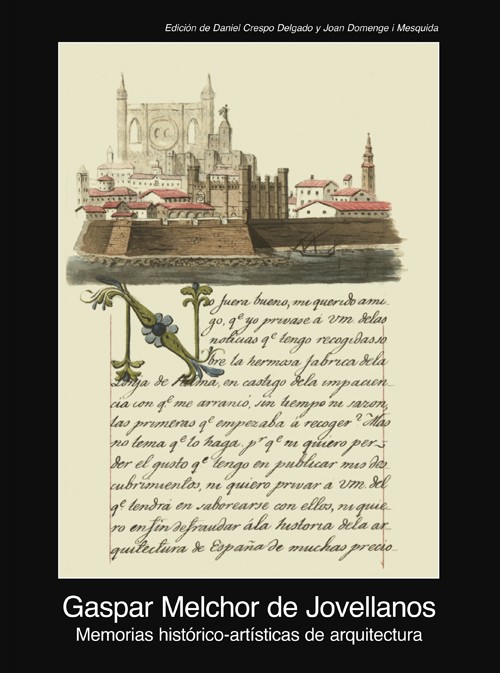 Edición de Daniel Crespo Delgado y Joan Domenge i Mesquida
No fuera bueno, mi querido ami-
go, qᵉ yo privase á Vm. delas
noticias qᵉ tengo recogidas so
bre la hermosa fabrica dela
Lonja de Palma, en castigo dela impacien-
cia con qᵉ me arrancó, sin tiempo ni sazon,
las primeras qᵉ empezaba á recoger? Mas
no tema qᵉ lo haga. pʳ qᵉ ni quiero per-
der el gusto qᵉ tengo en publicar mis des
cubrimientos, ni quiero privar a Vm. del
qᵉ tendrá en saborearse con ellos, ni quie-
ro en fin defraudar á la historia dela ar
quitectura de España de muchas precio-
Gaspar Melchor de Jovellanos
Memorias histórico-artísticas de arquitectura